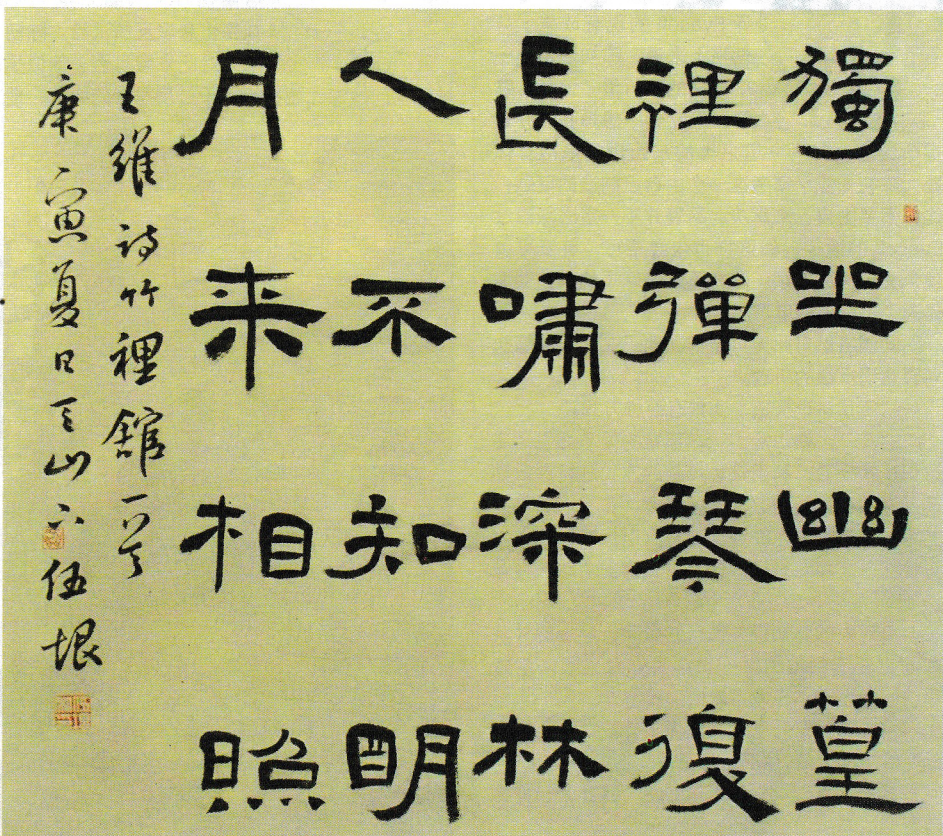 獨坐幽篁
裡彈琴復
長嘯深林
人不知明
月来相照
王維詩竹裡舘一首
庚寅夏日天山下伍垠